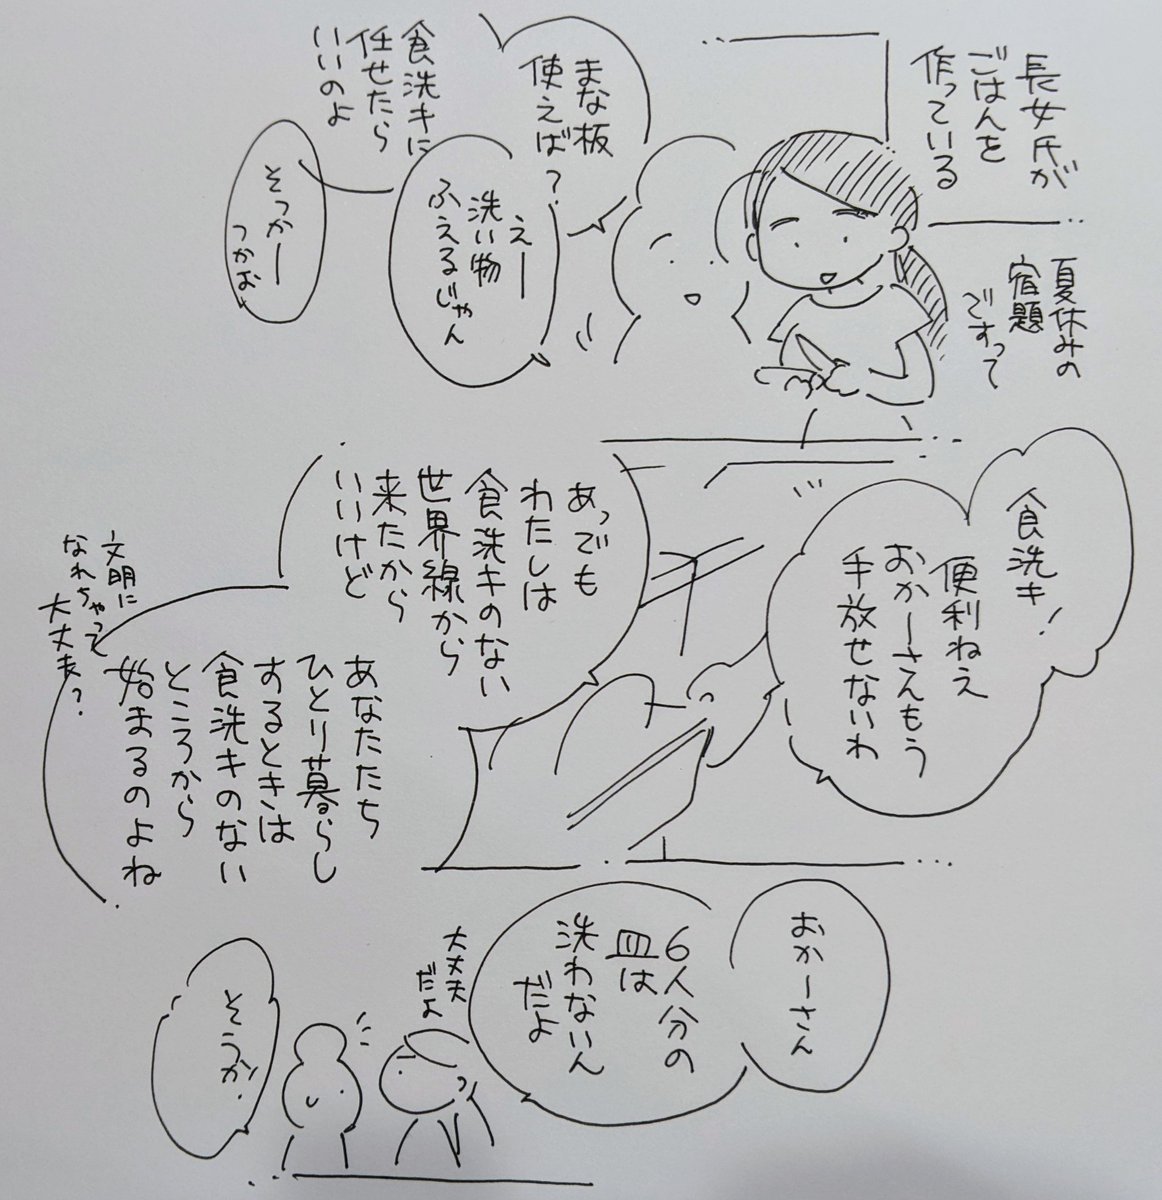 長女氏が
ごはんを
作っている
夏休みの
宿題
ですって
まな板
使えば？
えー
洗い物
ふえるじゃん
食洗キに
任せたら
いいのよ
そっかー
つかお
食洗キ！
便利ねえ
おかーさんもう
手放せないわ
あっでも
わたしは
食洗キのない
世界線から
来たから
いいけど
あなたたち
ひとり暮らし
するときは
食洗キのない
ところから
始まるのよね
文明に
なれちゃって
大丈夫？
おかーさん
6人分の
皿は
洗わないん
だよ
大丈夫
だよ
そうか！